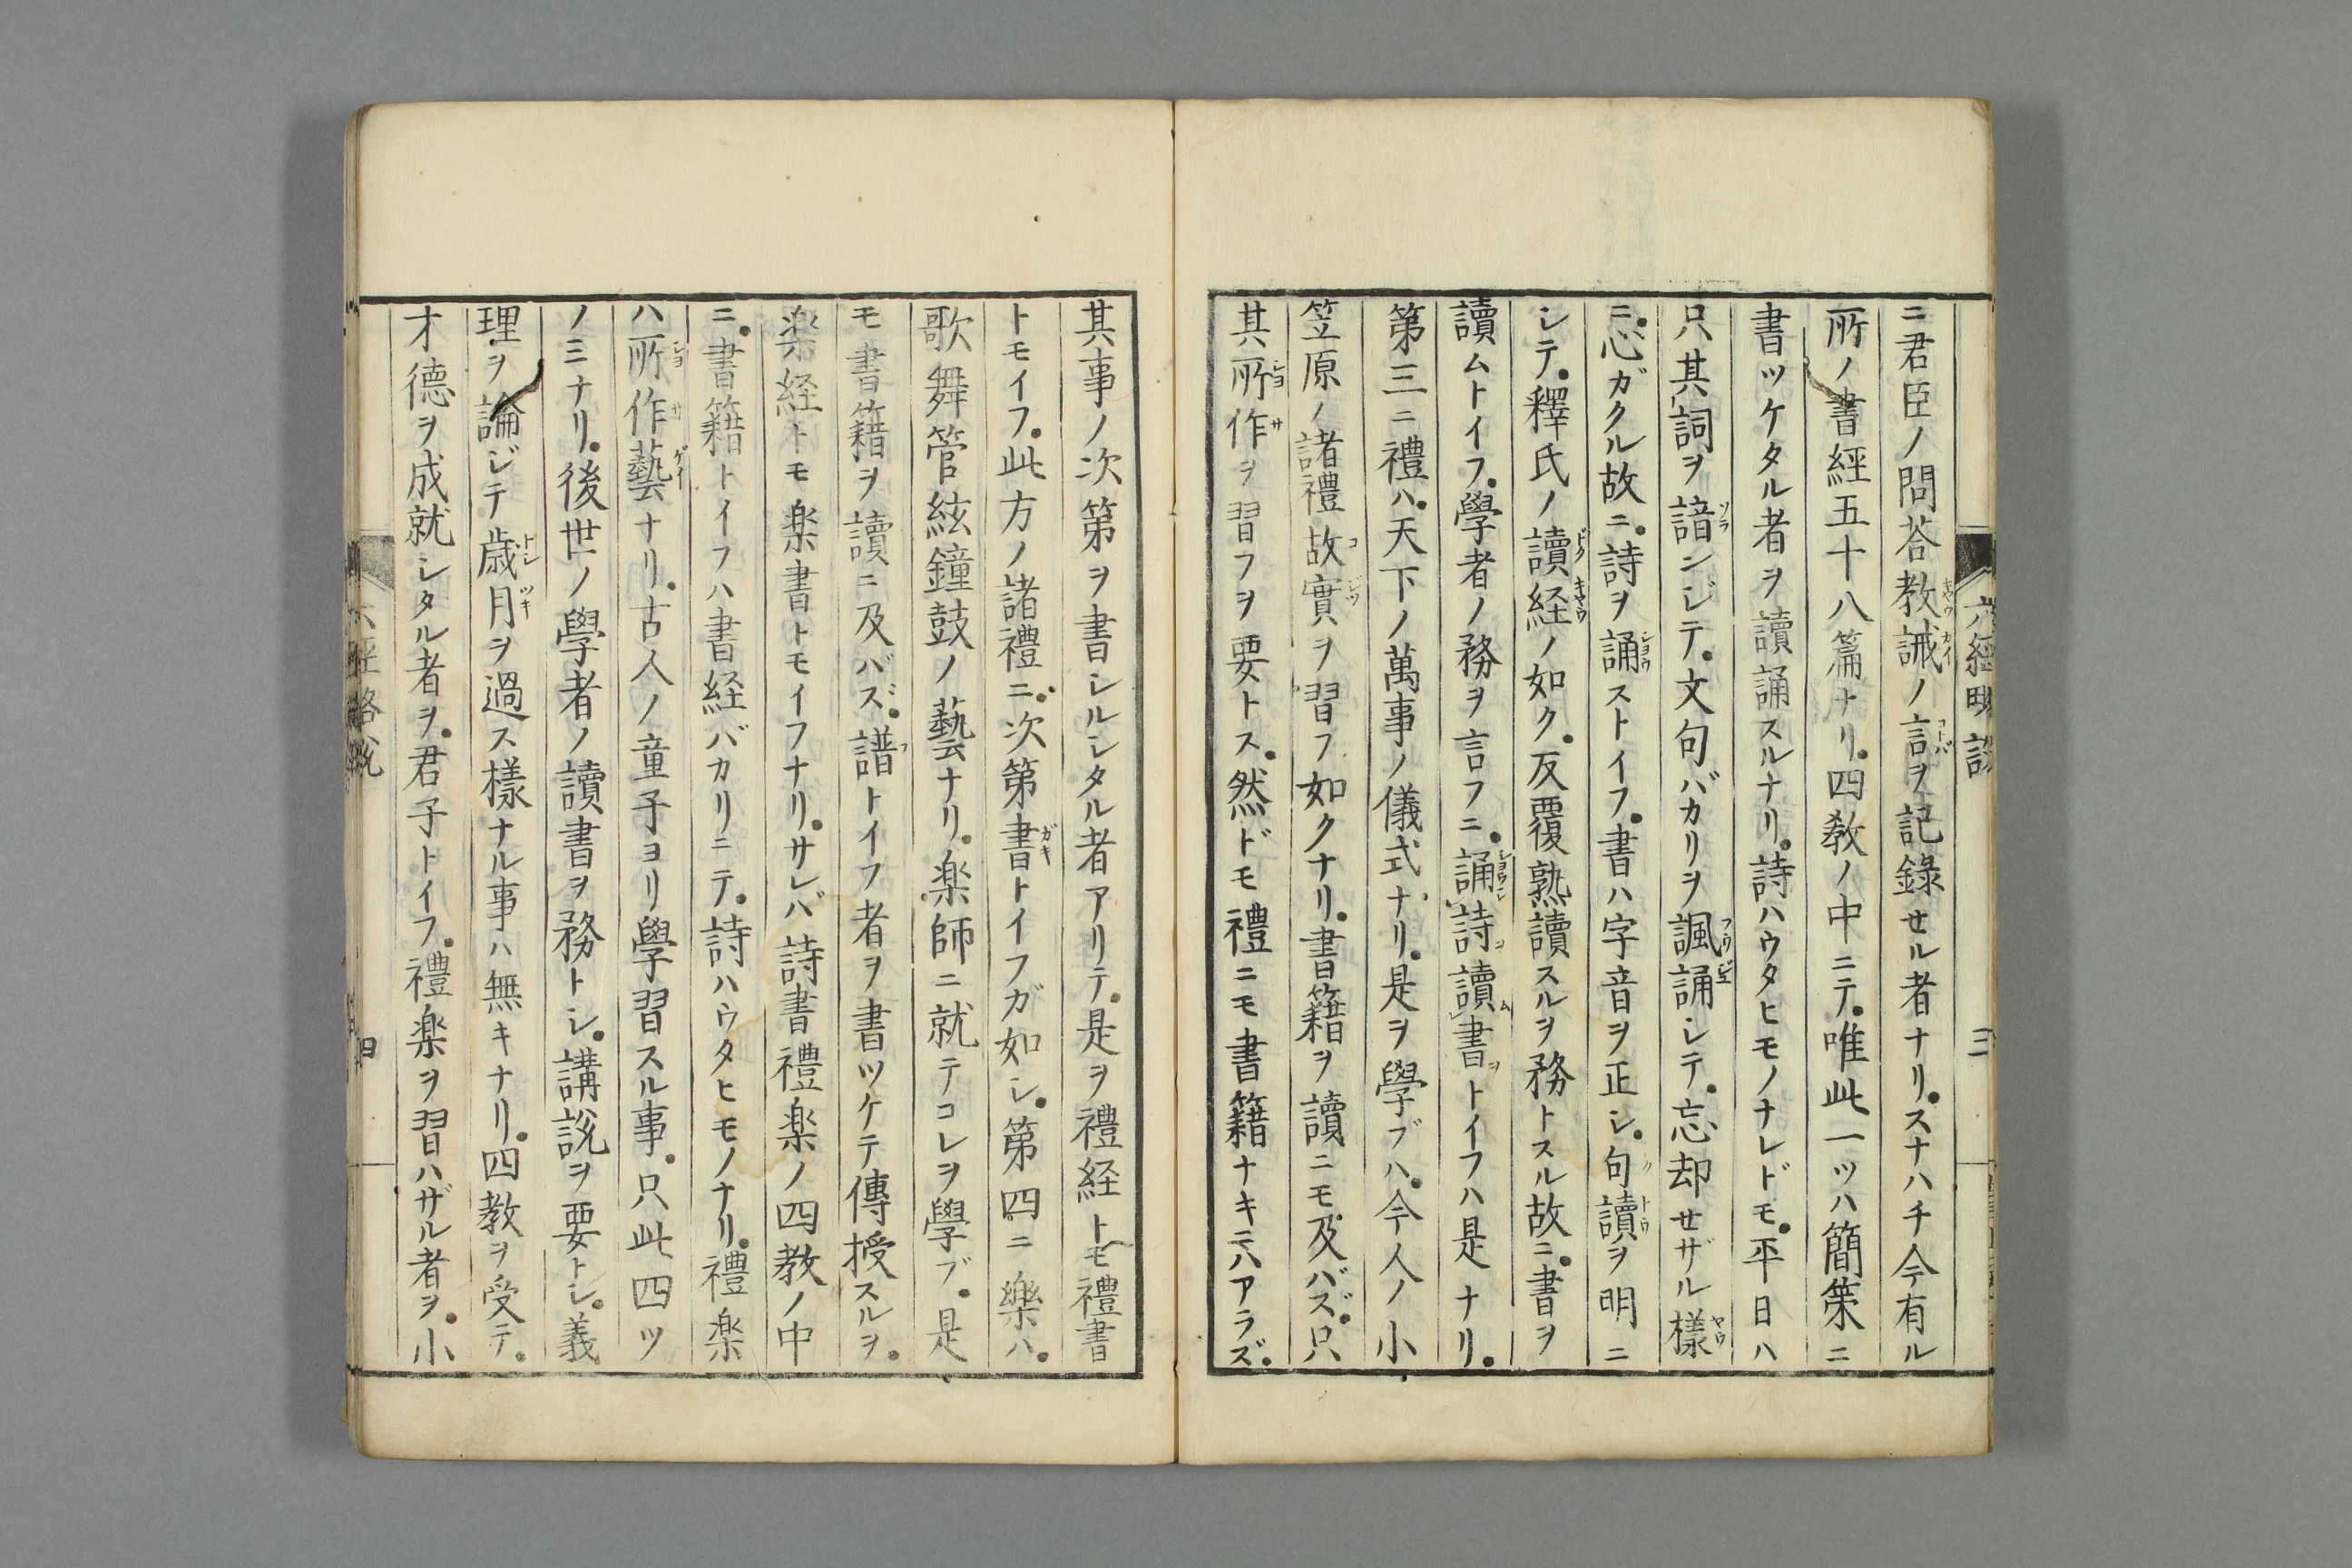 ニ君臣ノ問荅教誡ノ言ヲ記錄セル者ナリ。スナハチ今有ル
所ノ書經五十八篇ナリ。四教ノ中ニテ。唯此一ツハ簡策ニ
書ツケタル者ヲ讀誦スルナリ。詩ハウタヒモノナレドモ。平日ハ
只其詞ヲ諳ンジテ。文句バカリヲ諷誦シテ。忘却セザル樣
ニ。心ガクル故ニ。詩ヲ誦ストイフ。書ハ字音ヲ正シ。句讀ヲ明ニ
シテ。釋氏ノ讀経ノ如ク。反覆熟讀スルヲ務トスル故ニ。書ヲ
讀ムトイフ。學者ノ務ヲ言フニ。誦詩讀書トイフハ是ナリ。
第三ニ禮ハ。天下ノ萬事ノ儀式ナリ。是ヲ學ブハ。今人ノ小
笠原ノ諸禮故實ヲ習フ如クナリ。書籍ヲ讀ニモ及バズ。只
其所作ヲ習フヲ要トス。然ドモ禮ニモ書籍ナキニハアラズ。
其事ノ次第ヲ書シルシタル者アリテ。是ヲ禮経トモ禮書
トモイフ。此方ノ諸禮ニ。次第書トイフガ如シ。第四ニ樂ハ。
歌舞管絃鐘鼓ノ藝ナリ。楽師ニ就テコレヲ學ブ。是
モ書籍ヲ讀ニ及バズ。譜トイフ者ヲ書ツケテ傳授スルヲ。
楽経トモ楽書トモイフナリ。サレバ詩書禮楽ノ四教ノ中
ニ。書籍トイフハ書経バカリニテ。詩ハウタヒモノナリ。禮楽
ハ所作藝ナリ。古人ノ童子ヨリ學習スル事。只此四ツ
ノミナリ。後世ノ學者ノ讀書ヲ務トシ。講説ヲ要トシ。義
理ヲ論ジテ歳月ヲ過ス樣ナル事ハ無キナリ。四教ヲ受テ。
才德ヲ成就シタル者ヲ。君子トイフ。禮楽ヲ習ハザル者ヲ。小